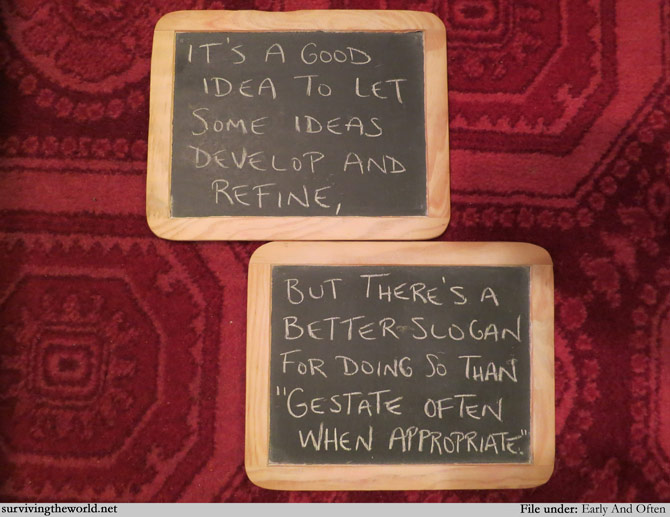 IT'S A GOOD
IDEA TO LET
SOME IDEAS
DEVELOP AND
REFINE,
BUT THERE'S A
BETTER SLOGAN
FOR DOING SO THAN
"GESTATE OFTEN
WHEN APPROPRIATE."
survivingtheworld.net
File under: Early And Often